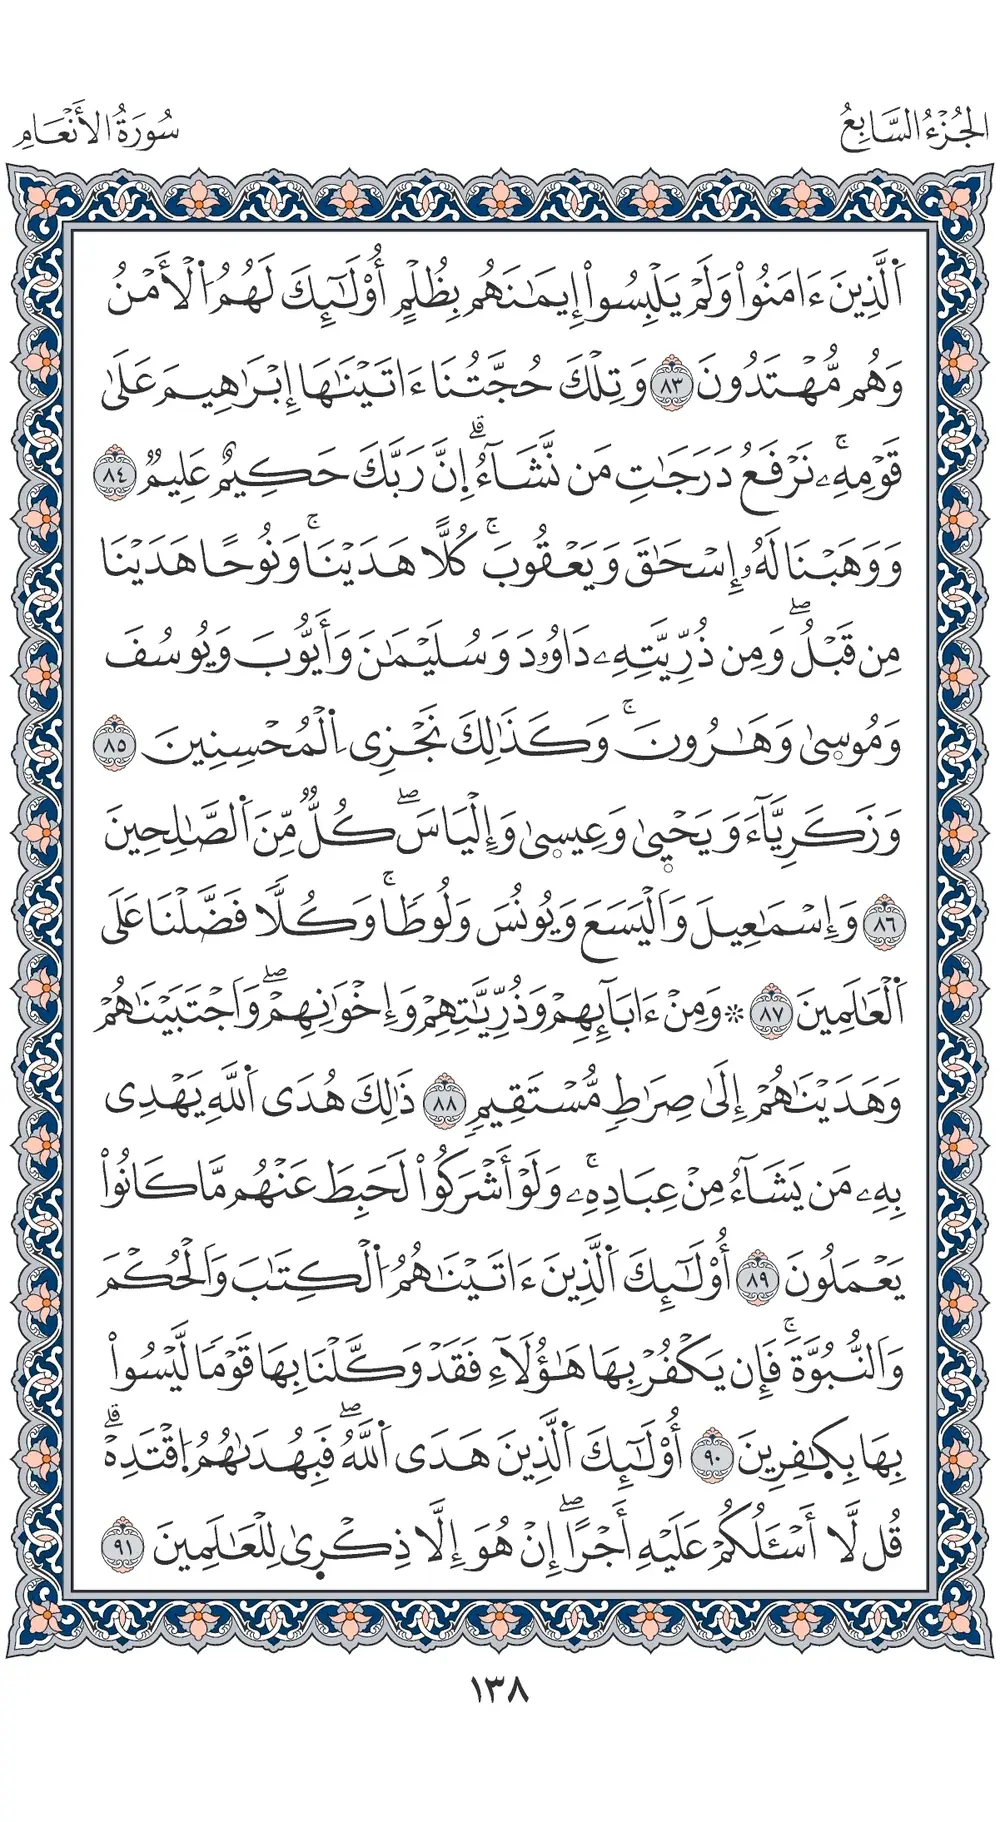 الجُزْءُ السَّابِعُ
سُورَةُ الأَنْعَامِ
اَ۬لَّذِينَ ءَامَنُواْ وَلَمْ يَلْبِسُواْ إِيمَٰنَهُم بِظُلْمٍ أُوْلَٰٓئِكَ لَهُمُ اُ۬لْأَمْنُ
وَهُم مُّهْتَدُونَ ٨٣ وَتِلْكَ حُجَّتُنَا ءَاتَيْنَٰهَا إِبْرَٰهِيمَ عَلَىٰ
قَوْمِهِۦۚ نَرْفَعُ دَرَجَٰتِ مَن نَّشَآءُۗ إِنَّ رَبَّكَ حَكِيمٌ عَلِيمٌ ٨٤
وَوَهَبْنَا لَهُۥ إِسْحَٰقَ وَيَعْقُوبَۚ كُلًّا هَدَيْنَاۚ وَنُوحًا هَدَيْنَا
مِن قَبْلُۖ وَمِن ذُرِّيَّتِهِۦ دَاوُۥدَ وَسُلَيْمَٰنَ وَأَيُّوبَ وَيُوسُفَ
وَمُوسۭىٰ وَهَٰرُونَۚ وَكَذَٰلِكَ نَجْزِي اِ۬لْمُحْسِنِينَ ٨٥
وَزَكَرِيَّآءَ وَيَحْيۭىٰ وَعِيسۭىٰ وَإِلْيَاسَۖ كُلٌّ مِّنَ اَ۬لصَّٰلِحِينَ
٨٦ وَإِسْمَٰعِيلَ وَاَلْيَسَعَ وَيُونُسَ وَلُوطًاۚ وَكُلًّا فَضَّلْنَا عَلَى
اَ۬لْعَٰلَمِينَ ٨٧ ۞ وَمِنْ ءَابَآئِهِمْ وَذُرِّيَّٰتِهِمْ وَإِخْوَٰنِهِمْۖ وَاَجْتَبَيْنَٰهُمْ
وَهَدَيْنَٰهُمْ إِلَىٰ صِرَٰطٍ مُّسْتَقِيمٍ ٨٨ ذَٰلِكَ هُدَى اَ۬للَّهِ يَهْدِي
بِهِۦ مَن يَشَآءُ مِنْ عِبَادِهِۦۚ وَلَوْ أَشْرَكُواْ لَحَبِطَ عَنْهُم مَّا كَانُواْ
يَعْمَلُونَ ٨٩ أُوْلَٰٓئِكَ اَ۬لَّذِينَ ءَاتَيْنَٰهُمُ اُ۬لْكِتَٰبَ وَالْحُكْمَ
وَالنُّبُوَّةَۚ فَإِن يَكْفُرْ بِهَا هَٰؤُلَآءِ فَقَدْ وَكَّلْنَا بِهَا قَوْمًا لَّيْسُواْ
بِهَا بِكٰ۪فِرِينَ ٩٠ أُوْلَٰٓئِكَ اَ۬لَّذِينَ هَدَى اَ۬للَّهُۖ فَبِهُدَىٰهُمُ اُ۪قْتَدِهْۗ
قُل لَّا أَسْـَٔلُكُمْ عَلَيْهِ أَجْرًاۖ إِنْ هُوَ إِلَّا ذِكْر۪ىٰ لِلْعَٰلَمِينَ ٩١
١٣٨